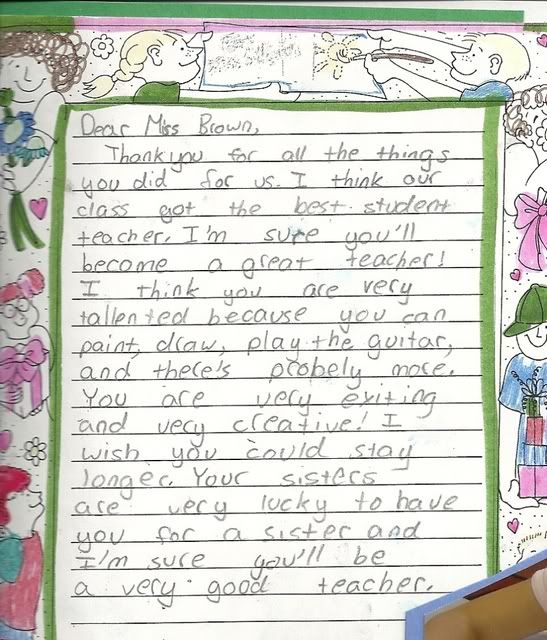 Dear Miss Brown,
Thank you for all the things
you did for us. I think our
class got the best student
teacher. I'm sure you'll
become a great teacher!
I think you are very
tallented because you can
paint, draw, play the guitar,
and there's probely more.
You are very exiting
and very creative! I
wish you could stay
longer. Your sisters
are very lucky to have
you for a sister and
I'm sure you'll be
a very good teacher.